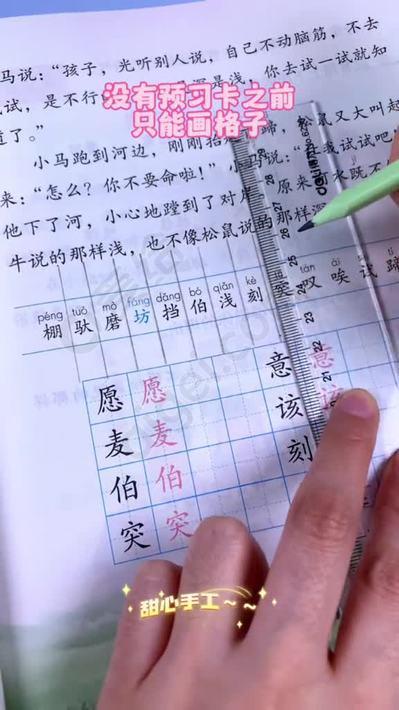 马说：“孩子，光听别人说，自己不动脑筋，不去
试，是不行
是浅，你去试一试就知
道了。”
没有预习卡之前
只能画格子
小马跑到河边，刚刚抬
蹄，松鼠又大叫起
来：“怎么？你不要命啦！”小
说：“
试试吧
他下了河，小心地蹚到了对岸
原来
水既不
牛说的那样浅，也不像松鼠说的那样深
péng tuó mò fáng dǎng bó qiǎn kè tū tàn āi tí
棚 驮 磨 坊 挡 伯 浅 刻 突 叹 唉 试 蹄
愿 愿 意 意
麦 麦 该 该
伯 伯 刻
突 突
甜心手工～～